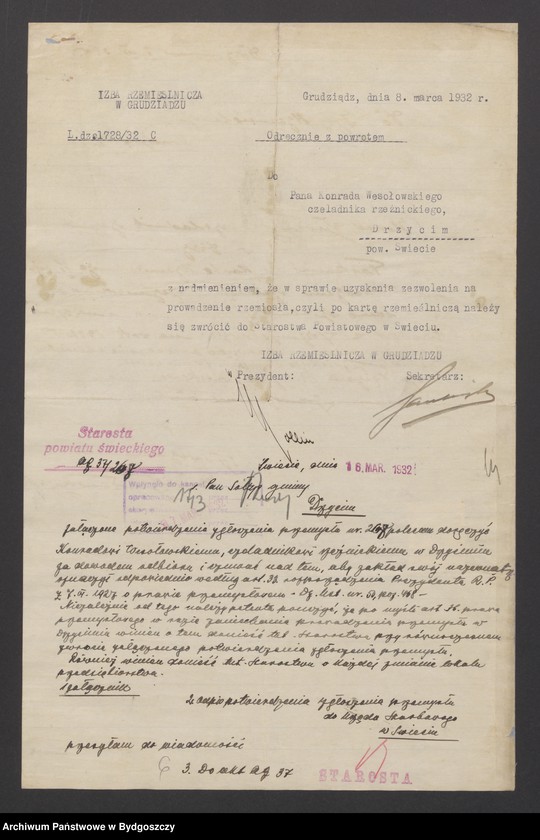 IZBA RZEMIESLNICZA
W GRUDZIADZU
Grudziądz, dnia 8. marca 1932 r.
L.dz.1728/32 C
Odręcznie z powrotem
Do
Pana Konrada Wesołowskiego
czeladnika rzeźnickiego,
Drzycim
pow. Świecie
z nadmienieniem, że w sprawie uzyskania zezwolenia na
prowadzenie rzemiosła, czyli po kartę rzemieślniczą należy
się zwrócić do Starostwa Powiatowego w Świeciu.
IZBA RZEMIESLNICZA W GRUDZIADZU
Prezydent:
Sekretarz:
Starosta
powiatu świeckiego
Świecie, dnia 16. MAR. 1932
Pan Sołtys gminy
Drzycim
Załączone potwierdzenie zgłoszenia przemysłu nr. polecam doręczyć
Konradowi Wesołowskiemu, czeladnikowi rzeźnickiemu w Drzycimiu
za dowodem odbioru i czuwać nad tem, aby zakład swój
oznaczył odpowiednio według art. 33 rozporządzenia Prezydenta R.P.
z 7.VI.1927 o prawie przemysłowem - Dz. Ust. nr. 53, poz. 468 -
Niezależnie od tego należy petenta pouczyć, że po myśli art. prawa
przemysłowego w razie zaniechania prowadzenia przemysłu w
Drzycimiu winien o tem donieść tut. Starostwu przy równoczesnem
zwrocie załączonego potwierdzenia zgłoszenia przemysłu.
Również winien donieść tut. Starostwu o każdej zmianie lokalu
przedsiębiorstwa.
1 załącznik
2. odpis potwierdzenia zgłoszenia przemysłu
do Urzędu Skarbowego
w Świeciu
przesyłam do wiadomości
3. Do akt Ag 37
STAROSTA
Archiwum Państwowe w Bydgoszczy